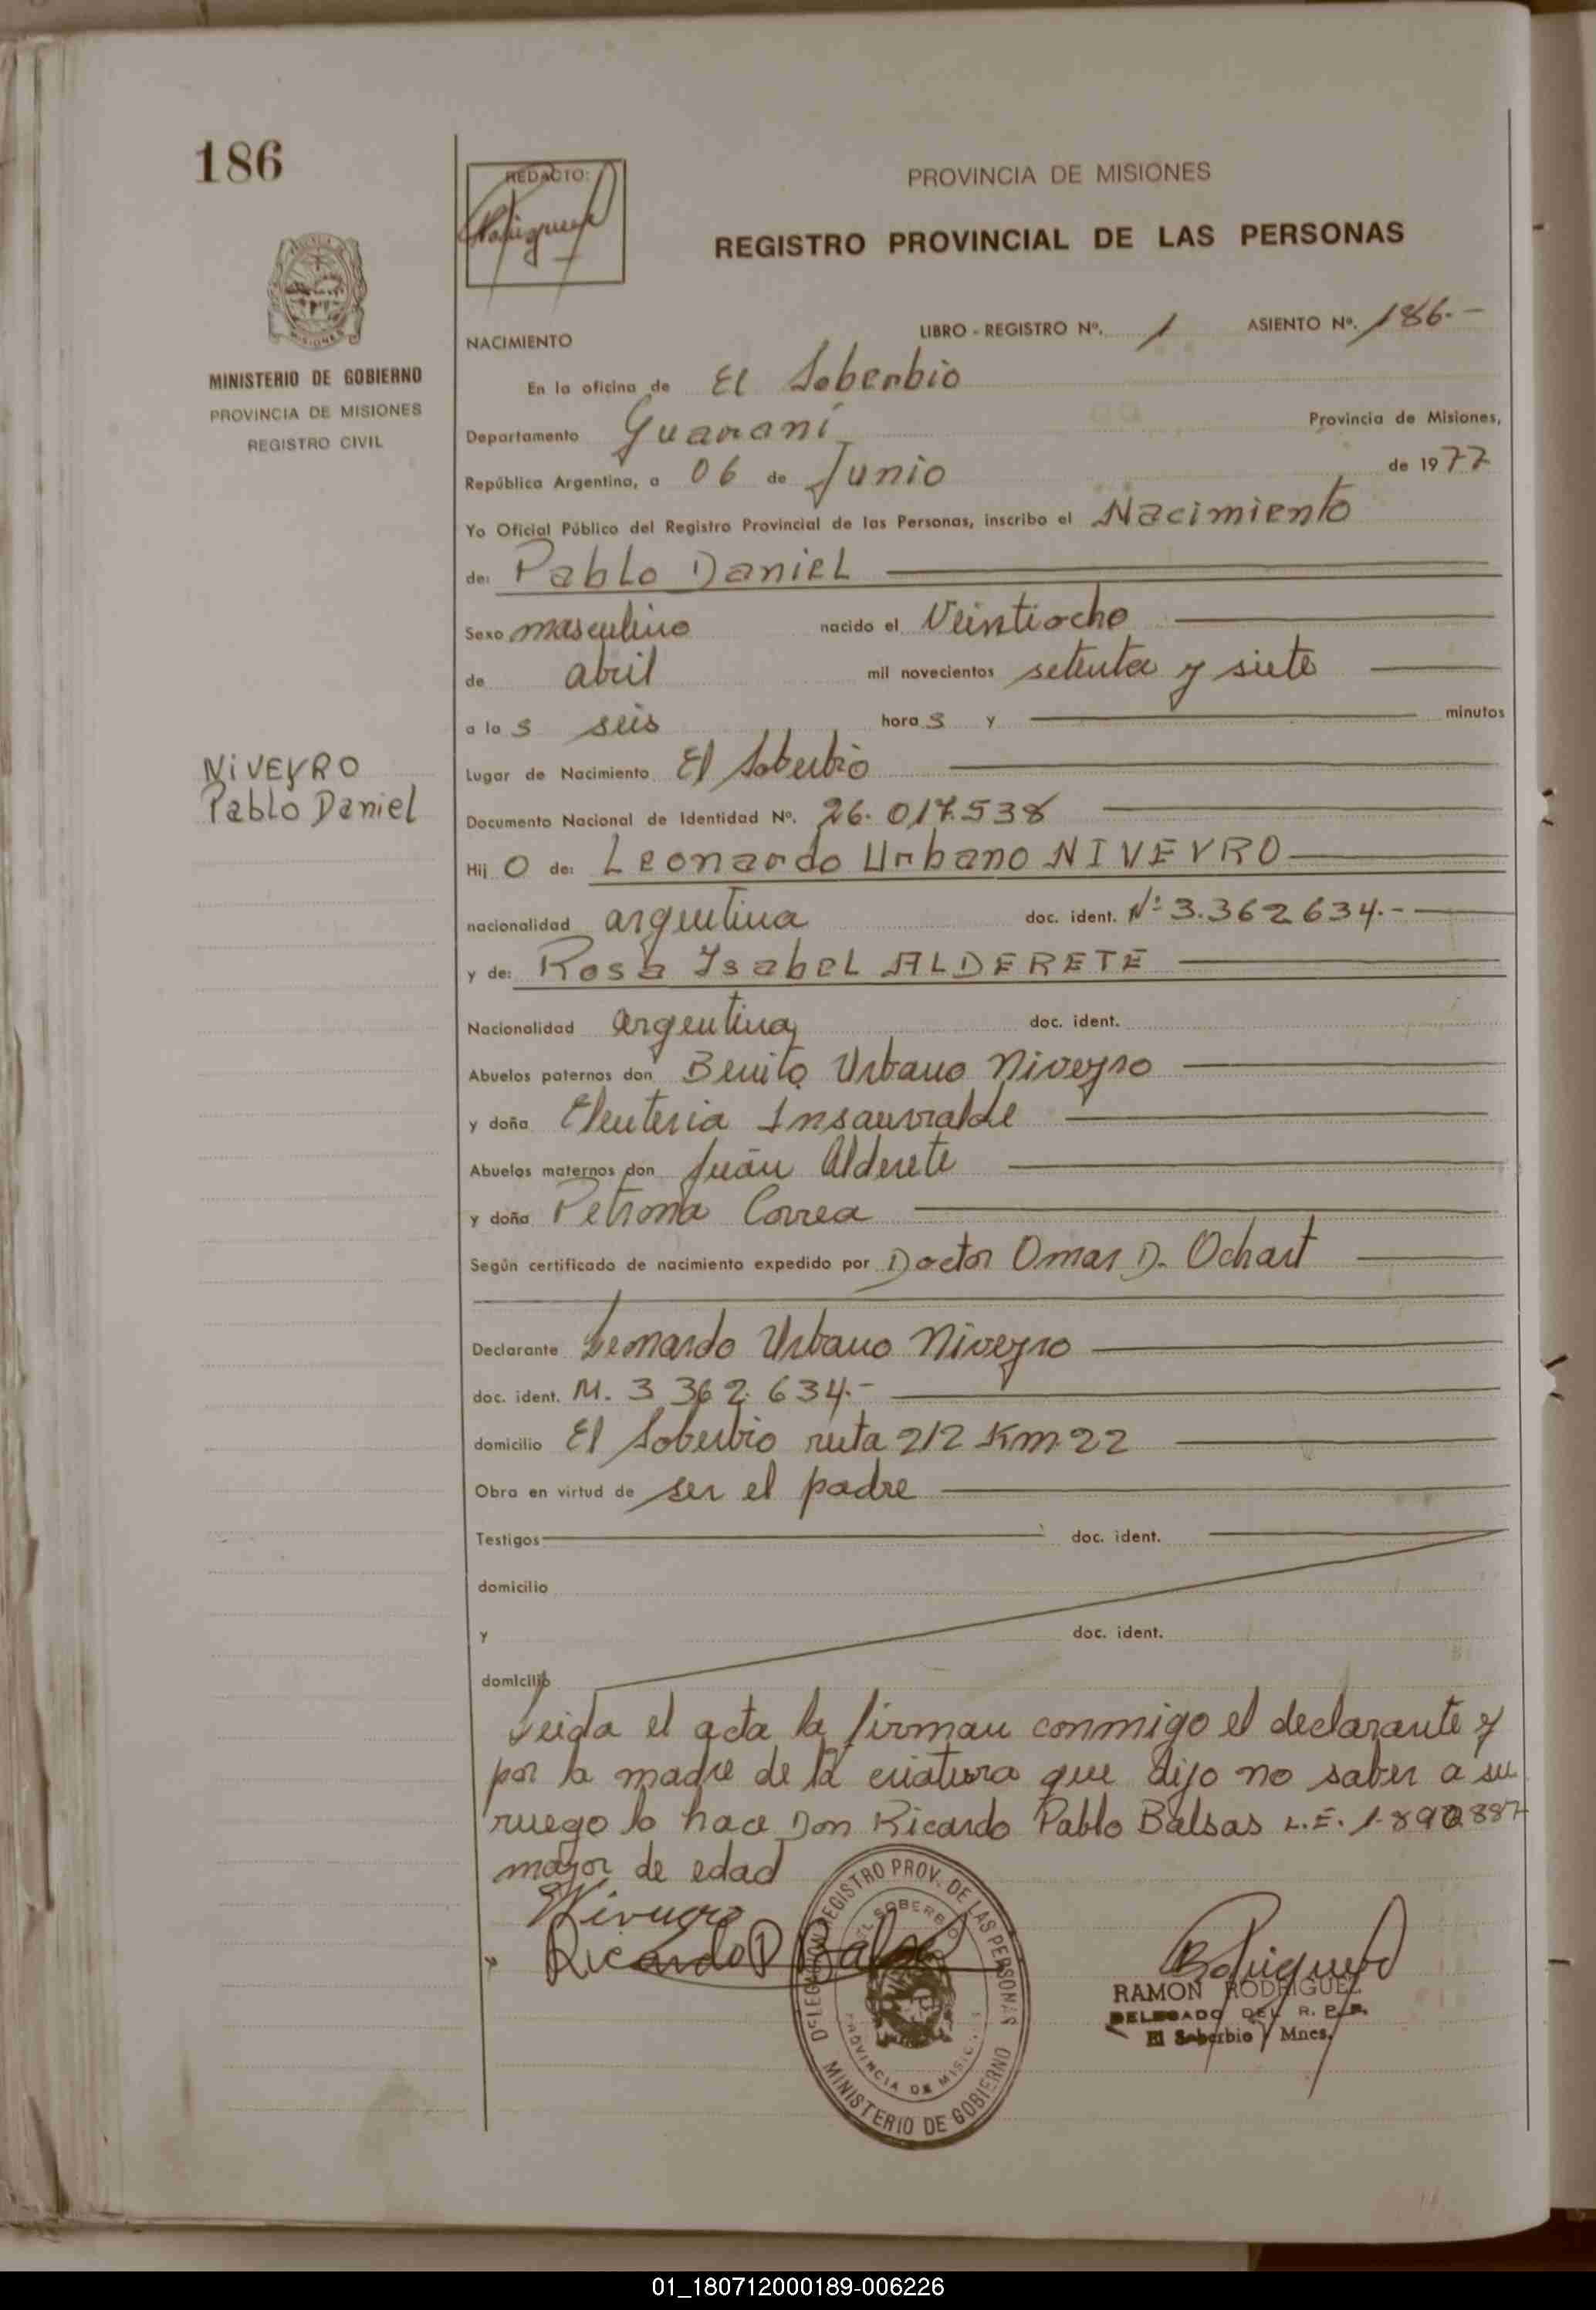 186
REDACTO:
PROVINCIA DE MISIONES
REGISTRO PROVINCIAL DE LAS PERSONAS
MINISTERIO DE GOBIERNO
PROVINCIA DE MISIONES
REGISTRO CIVIL
NACIMIENTO
LIBRO - REGISTRO Nº. 1 ASIENTO Nº. 186.-
En la oficina de El Soberbio
Departamento Guaraní Provincia de Misiones,
República Argentina, a 06 de Junio de 1977
Yo Oficial Público del Registro Provincial de las Personas, inscribo el Nacimiento
de: Pablo Daniel
Sexo masculino nacido el Veintiocho
de abril mil novecientos setenta y siete
a las seis horas y minutos
NIVEYRO
Pablo Daniel
Lugar de Nacimiento El Soberbio
Documento Nacional de Identidad Nº. 26.017.538
Hijo de: Leonardo Urbano NIVEYRO
nacionalidad argentina doc. ident. Nº 3.362634.-
y de: Rosa Isabel ALDERETE
Nacionalidad argentina doc. ident.
Abuelos paternos don Benito Urbano Niveyro
y doña Eleuteria Insaurralde
Abuelos maternos don Juan Alderete
y doña Petrona Correa
Según certificado de nacimiento expedido por Doctor Omar D. Ochart
Declarante Leonardo Urbano Niveyro
doc. ident. M. 3 362.634.-
domicilio El Soberbio ruta 212 Km 22
Obra en virtud de ser el padre
Testigos doc. ident.
domicilio
y doc. ident.
domicilio
Leida el acta la firman conmigo el declarante y
por la madre de la criatura que dijo no saber a su
ruego lo hace Don Ricardo Pablo Balsas L.E. 1.890887
mayor de edad
Niveyro
Ricardo P Balsa
DELEGACION REGISTRO PROV. DE LAS PERSONAS
EL SOBERBIO
PROVINCIA DE MISIONES
MINISTERIO DE GOBIERNO
RAMON RODRIGUEZ
DELEGADO DEL R. P. P.
El Soberbio Mnes.
01_180712000189-006226